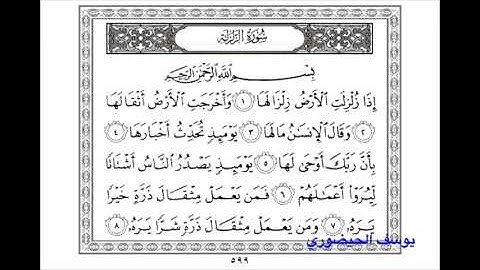 سُورَةُ الزَّلْزَلَةِ
بِسْمِ اللَّهِ الرَّحْمَٰنِ الرَّحِيمِ
إِذَا زُلْزِلَتِ الْأَرْضُ زِلْزَالَهَا ١ وَأَخْرَجَتِ الْأَرْضُ أَثْقَالَهَا
٢ وَقَالَ الْإِنسَٰنُ مَا لَهَا ٣ يَوْمَئِذٍ تُحَدِّثُ أَخْبَارَهَا ٤
بِأَنَّ رَبَّكَ أَوْحَىٰ لَهَا ٥ يَوْمَئِذٍ يَصْدُرُ النَّاسُ أَشْتَاتًا
لِّيُرَوْا أَعْمَٰلَهُمْ ٦ فَمَن يَعْمَلْ مِثْقَالَ ذَرَّةٍ خَيْرًا
يَرَهُۥ ٧ وَمَن يَعْمَلْ مِثْقَالَ ذَرَّةٍ شَرًّا يَرَهُۥ ٨
يوسف الحيضوري
٥٩٩